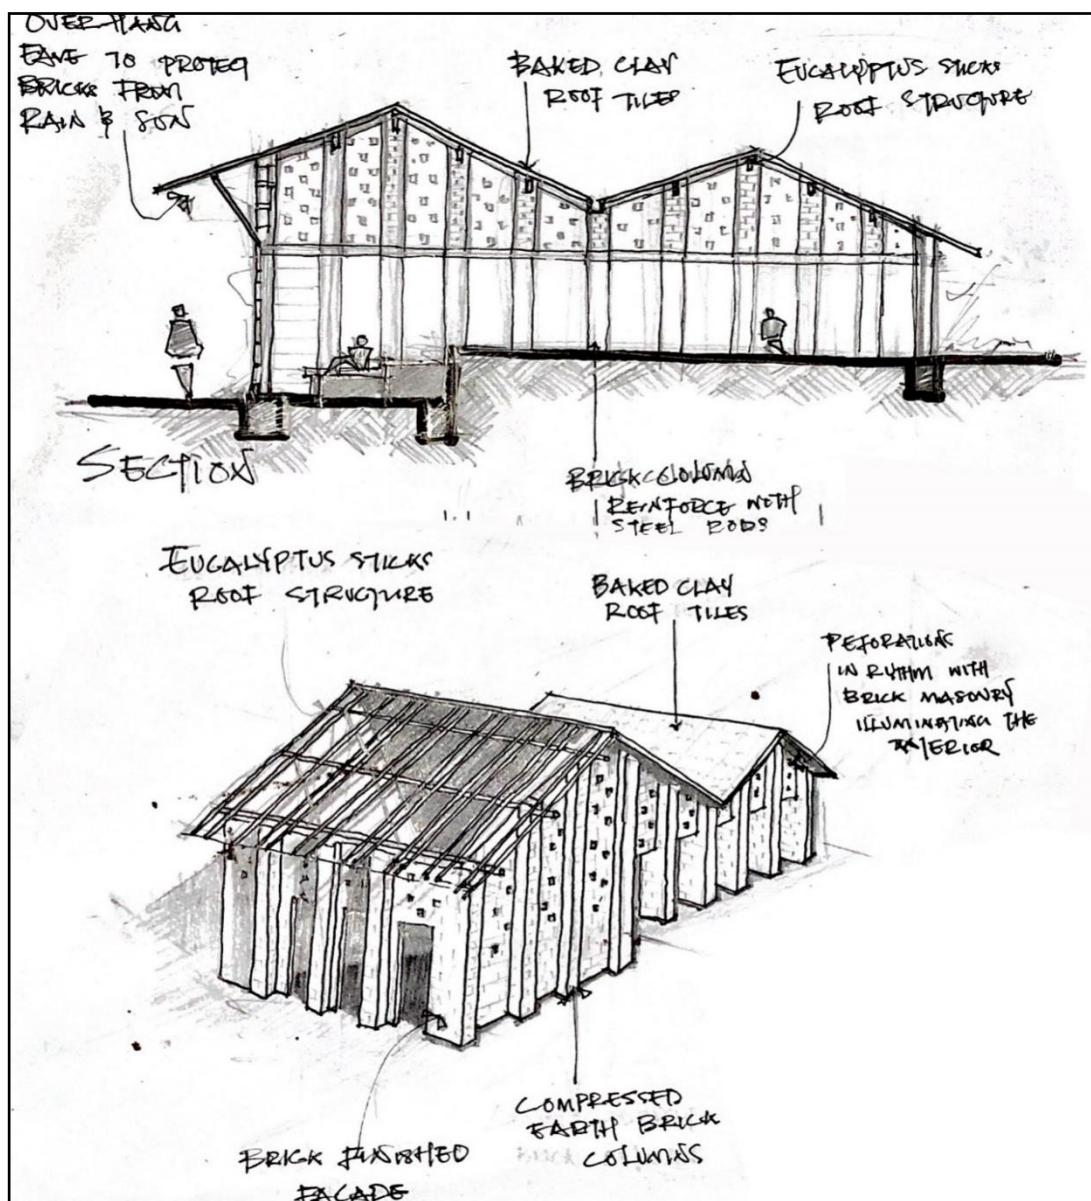 OVER-HANG
EAVE TO PROTEQ
BRICKS FROM
RAIN & SUN
BAKED CLAY
ROOF TILES
EUCALYPTUS STICKS
ROOF STRUCTURE
SECTION
BRICK COLUMN
REINFORCE WITH
STEEL RODS
EUCALYPTUS STICKS
ROOF STRUCTURE
BAKED CLAY
ROOF TILES
PEFORATIONS
IN RYTHM WITH
BRICK MASONRY
ILLUMINATING THE
INTERIOR
COMPRESSED
EARTH BRICK
COLUMNS
BRICK FINISHED
FACADE